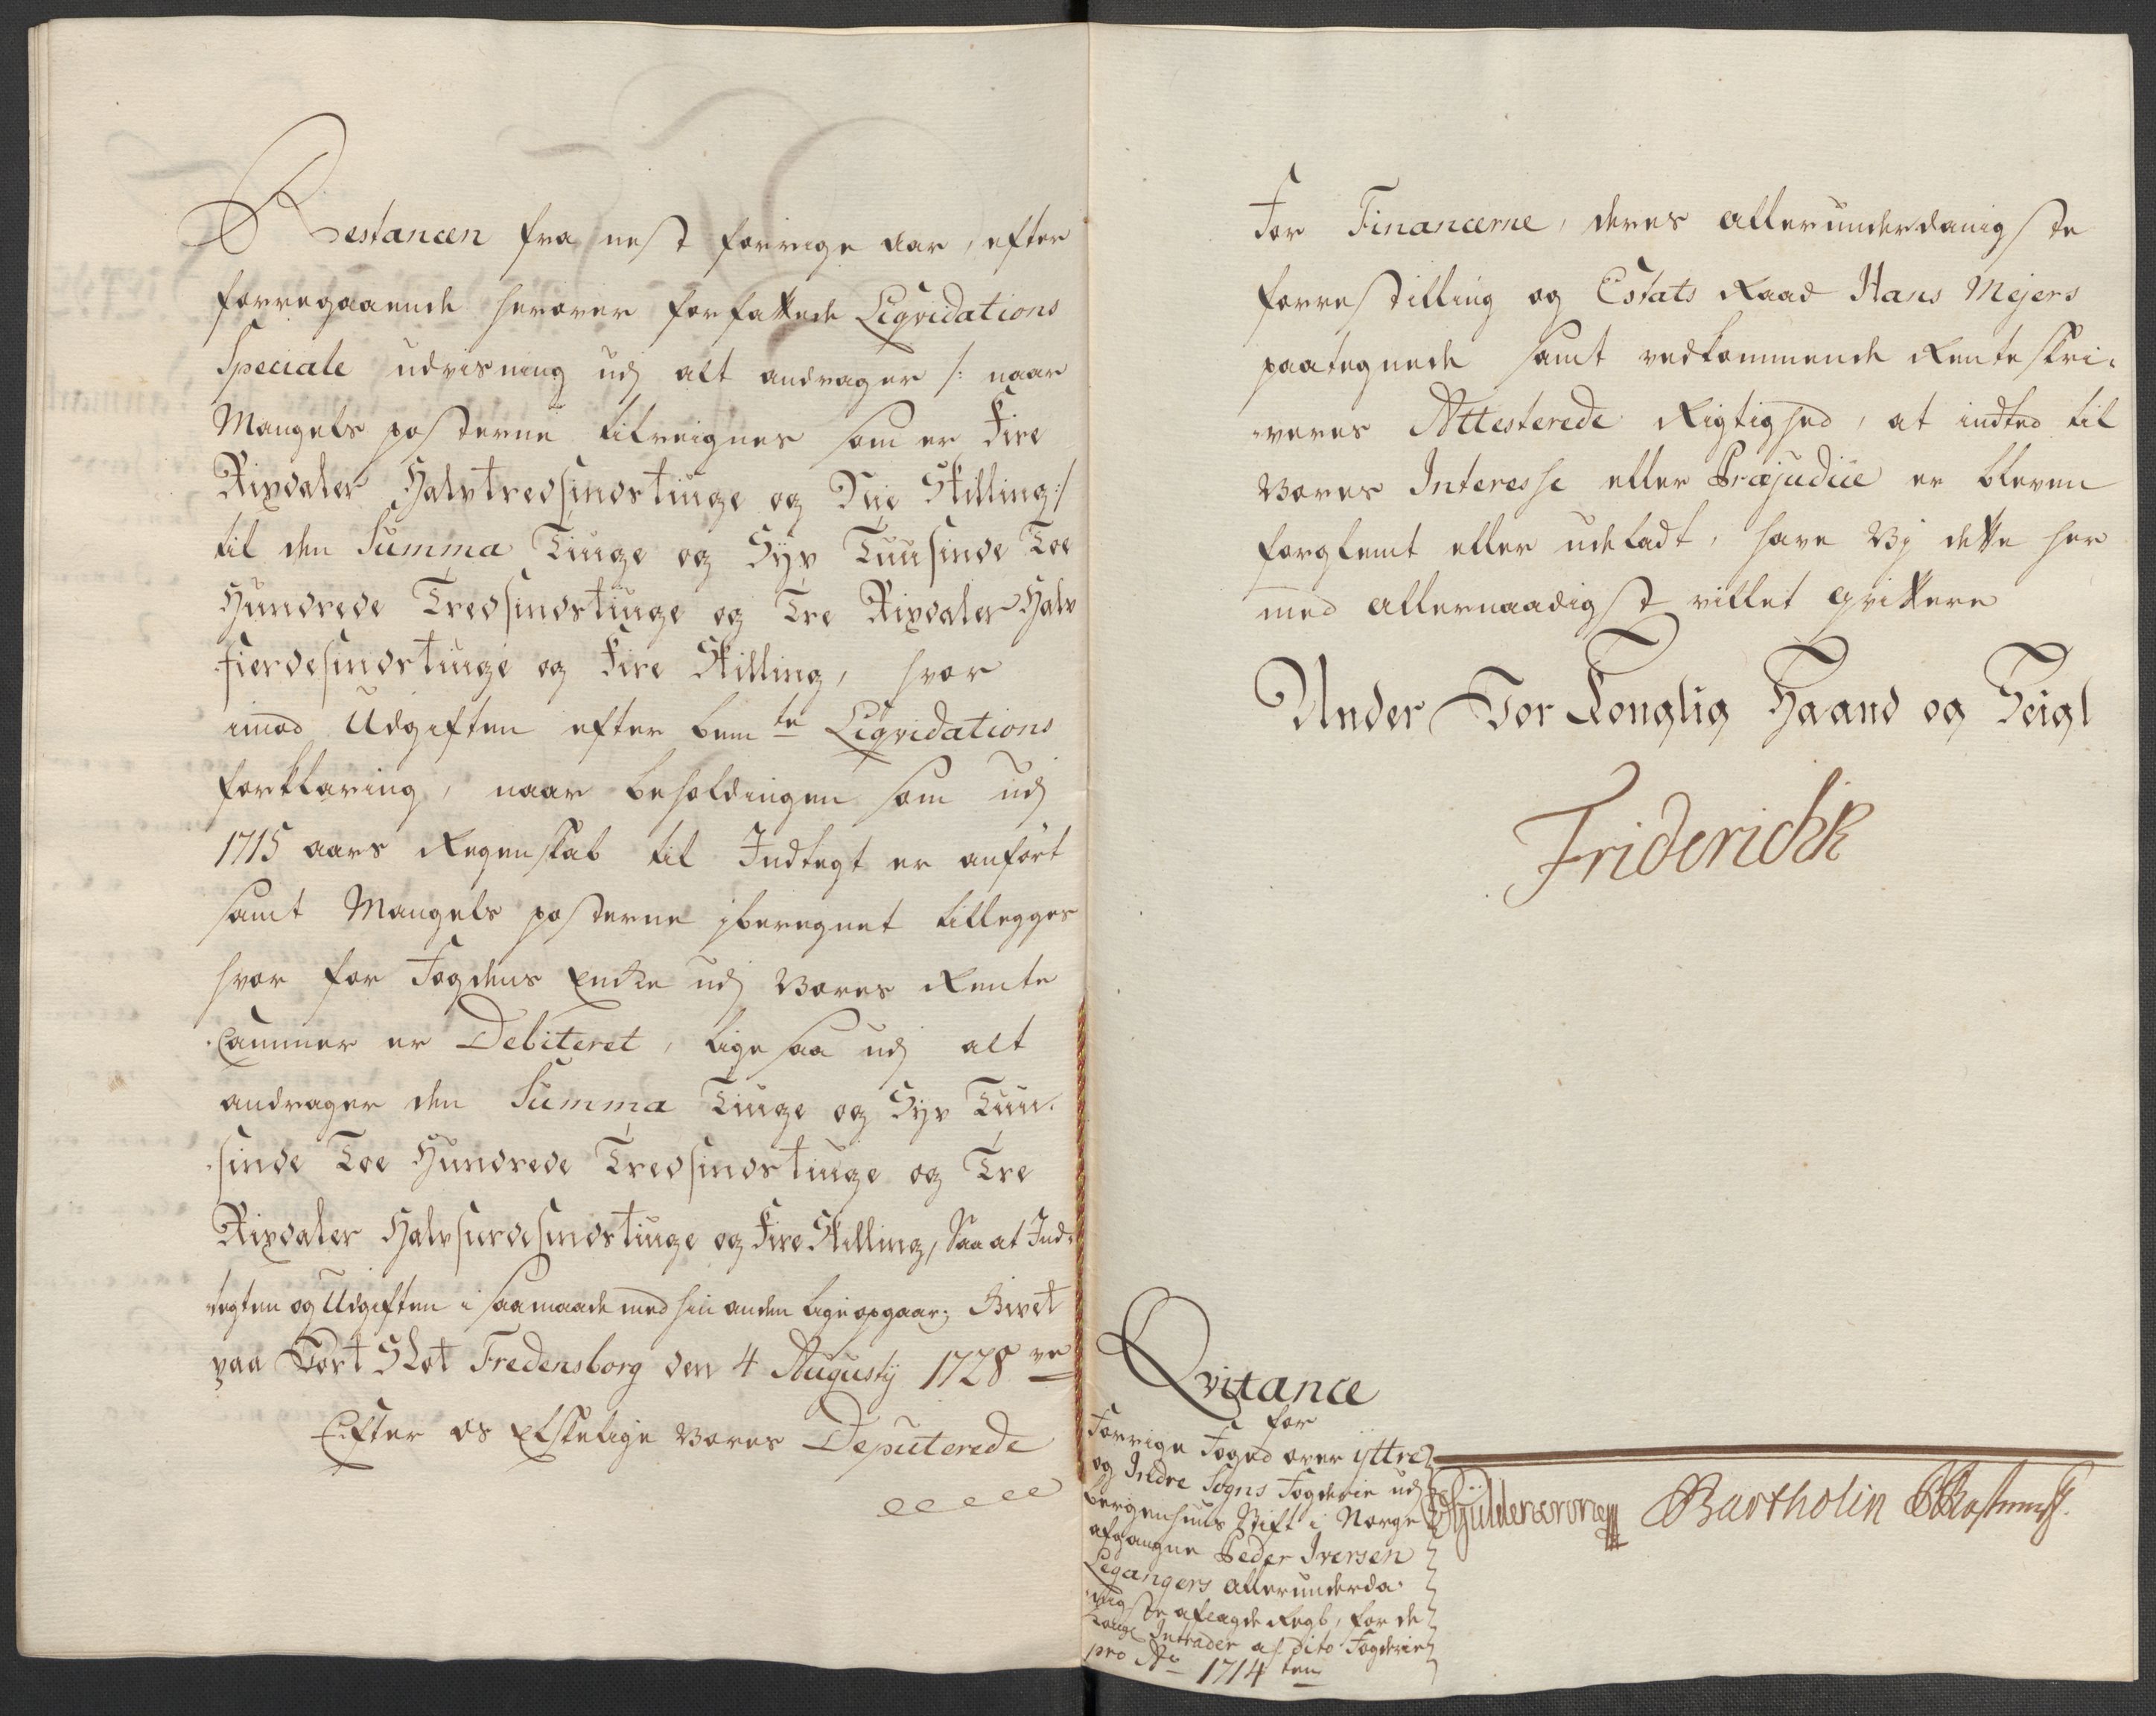 Restancen fra nest forrige Aar, efter
forregaaende herover forfattede Liqvidations
Speciale udvisning udj alt andrager /: naar
Mangels posterne tilreignes som er Fire
Rixdaler Halvtredsindstiuge og Nie Skilling :/
til den Summa Tiuge og Syv Tuusinde Toe
Hundrede Tredsindstiuge og Tre Rixdaler Halv
fierdesindstiuge og Fire Skilling, hvor
imod Udgiften efter bemte Liqvidations
forklaring, naar beholdingen som udj
1715 aars Regenskab til Indtegt er anført
samt Mangels posterne iberegnet tillegges
hvor for Fogdens Encke udj Vores Rente
Cammer er Debiteret, lige saa udj alt
andrager den Summa Tiuge og Syv Tuu-
sinde Toe Hundrede Tredsindstiuge og Tre
Rixdaler Halvfierdesindstiuge og Fire Skilling, Saa at Ind-
tegten og Udgiften i saa maade med hin anden lige opgaar; Givet
paa Vort Slot Fredensborg den 4 Augustj 1728 ve
Efter os Elskelige Vores Deputerede
for Financerne, deres allerunderdanigste
forrestilling og Estats Raad Hans Mejers
paategnede samt vedkommende Renteskri-
veres Attesterede Rigtighed, at indted til
Vores Interesse eller Præjudice er bleven
forglemt eller udeladt, have Vj dette her
med allernaadigst villet qvittere
Under Vor Konglig Haand og Seigl
Friderich R
Qvitance
for
Forrige Foged over yttre
og Indre Sogns Fogderie udj
Bergenhuus Stift i Norge
afgangne Peder Iversen
Legangers allerunderda-
nigste aflagde Regb, for de
Kongl Intrader af dito Fogderie
pro Ao 1714 ten
Güldencrone Bartholin